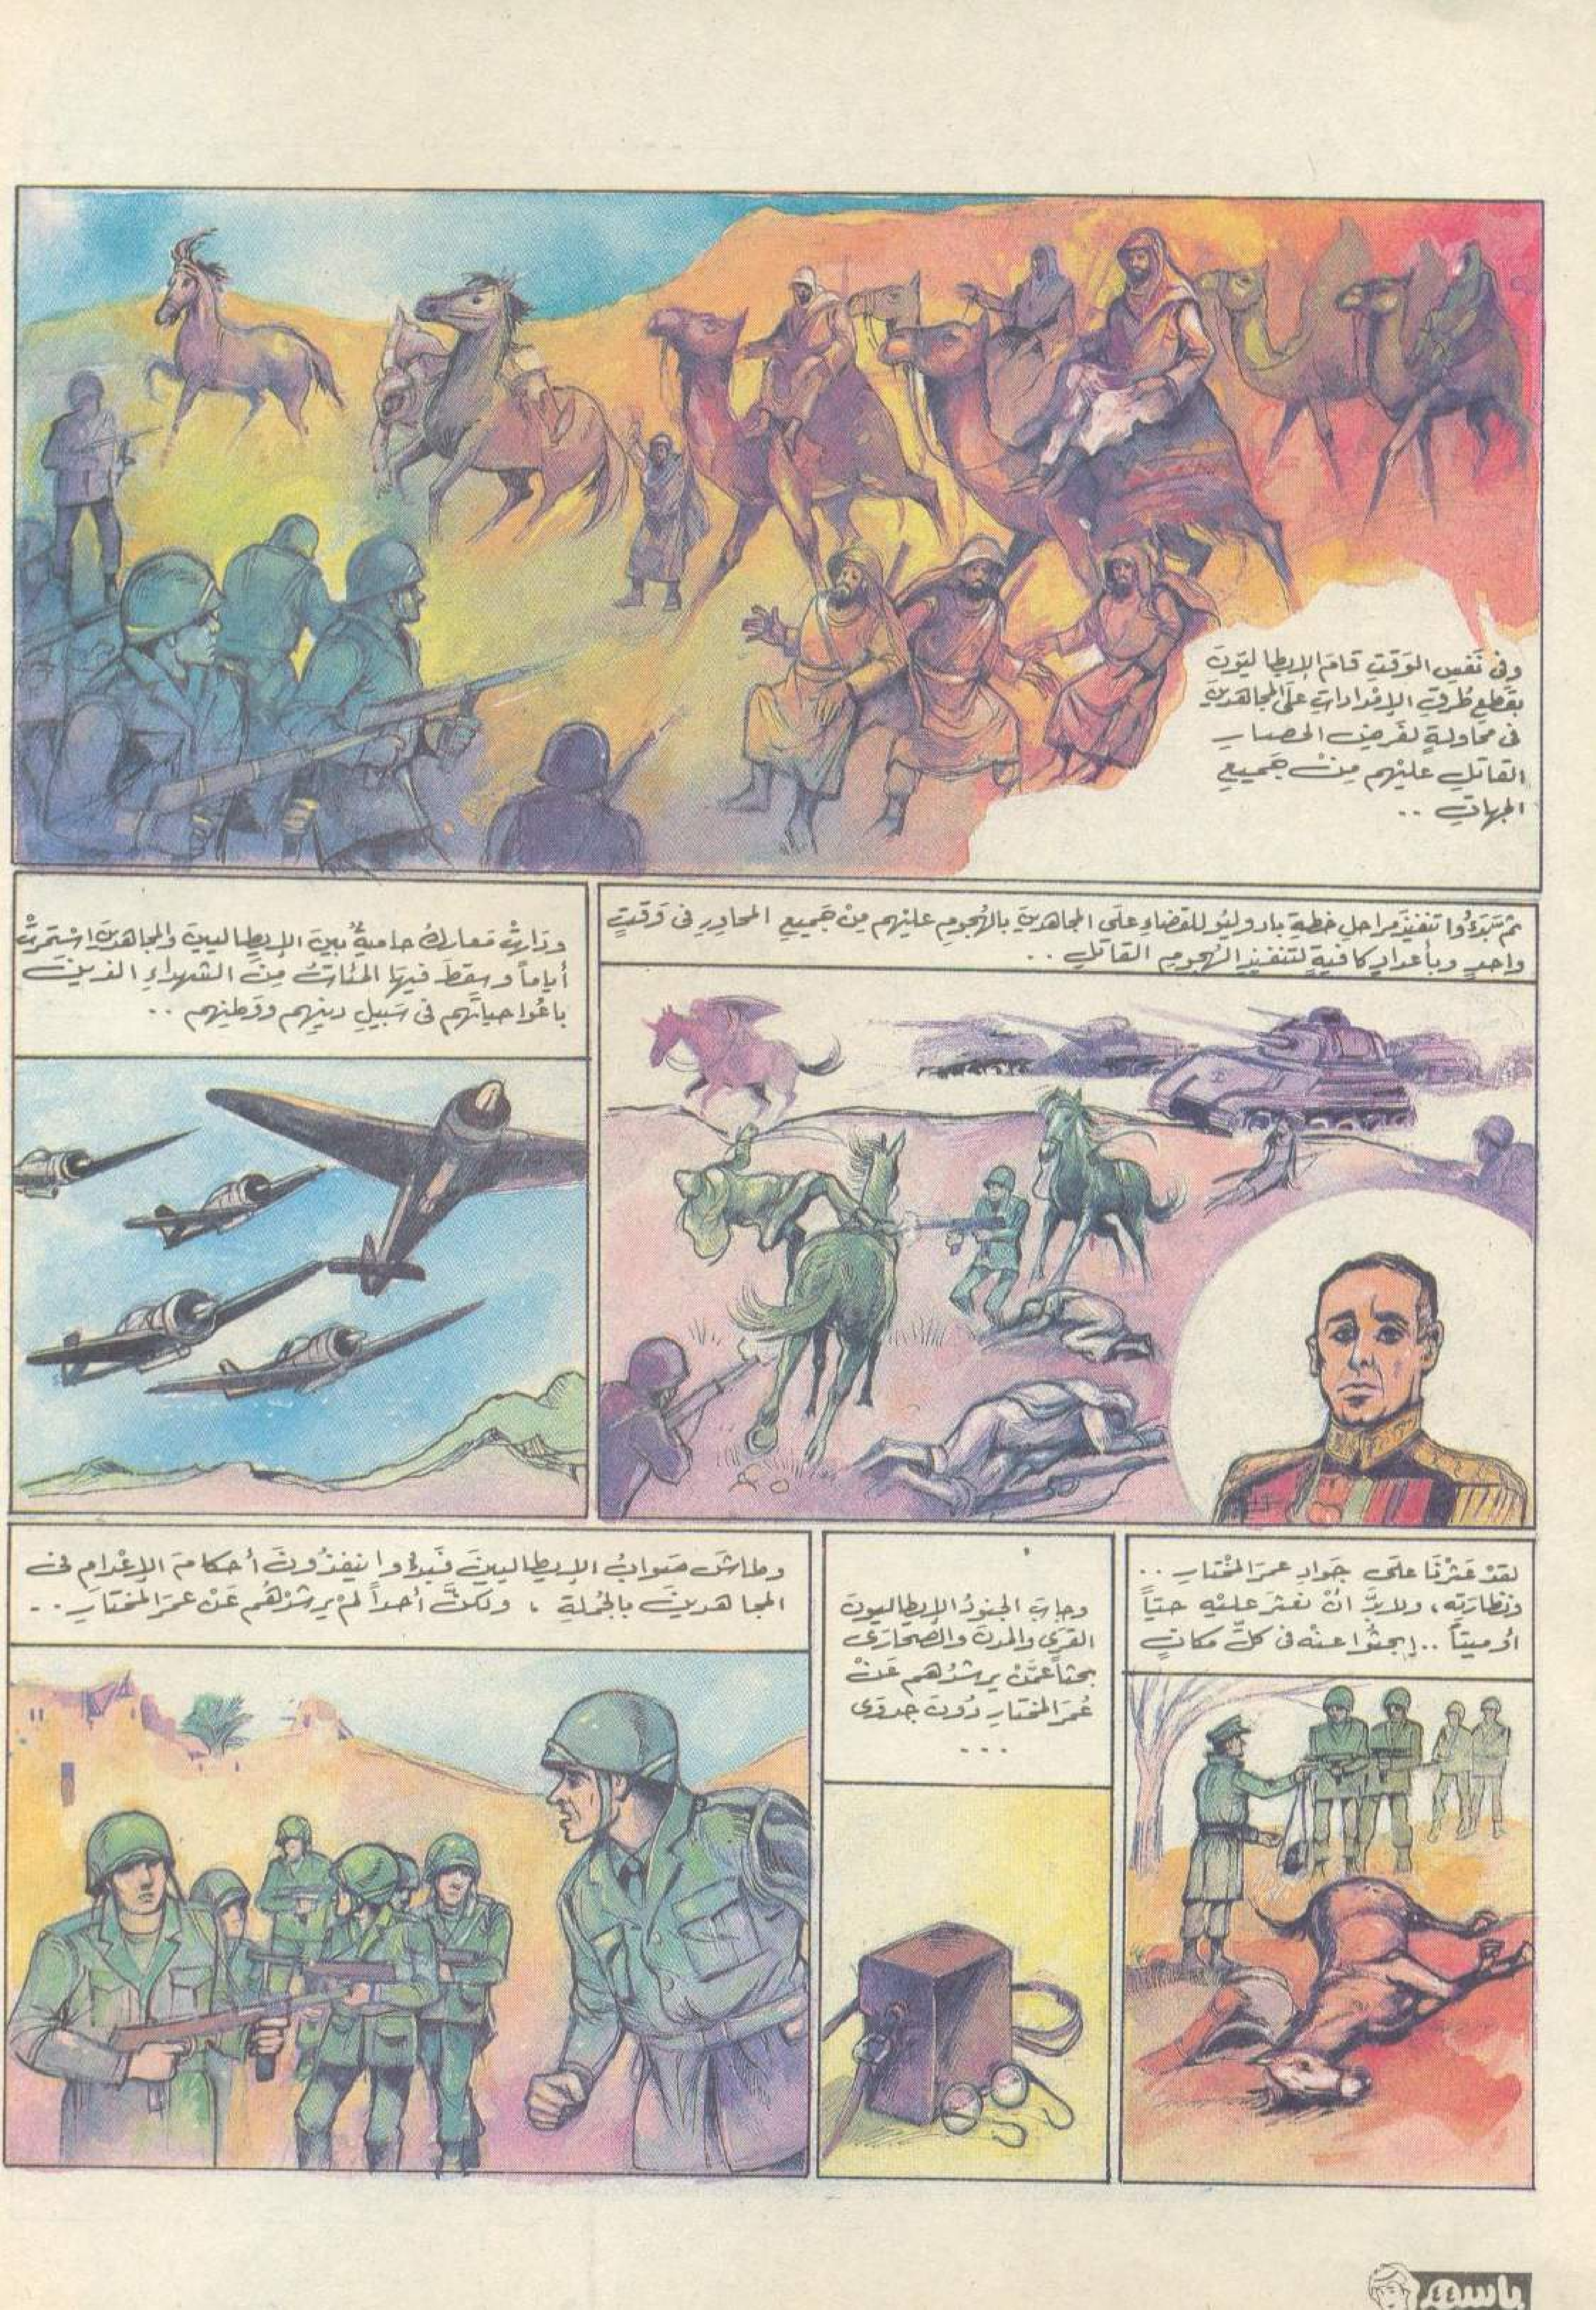 وفى نَفسِ الوَقتِ قامَ الإيطاليّونَ
بقَطعِ طُرقِ الإمْداداتِ علَى المجاهدينَ
فى محاولةٍ لفَرضِ الحصارِ
القاتلِ عليْهم مِنْ جَميعِ
الجهاتِ ..
ثم بَدَءُوا تنفيذَ مراحلِ خطةِ بادوليُو للقضاءِ علَى المجاهدينَ بالهُجومِ عليْهم مِنْ جَميعِ المحاورِ فى وَقتٍ
واحدٍ وبأعدادٍ كافيةٍ لتنفيذِ الهُجومِ القاتلِ ..
ودَارتْ مَعاركُ حاميةٌ بينَ الإيطاليينَ والمجاهدينَ اسْتمرتْ
أياماً وسقطَ فيهَا المئاتُ مِنَ الشهداءِ الذينَ
باعُوا حياتَهم فى سَبيلِ دينِهم ووَطنِهم ..
لقدْ عَثرْنَا علَى جَوادِ عمرَ المُختارِ ..
ونظارتِه، ولابدَّ أنْ نعثرَ عليْه حيّاً
أو ميتاً .. إبحثُوا عنْه فى كلِّ مكانٍ
وجابَ الجنودُ الإيطاليونَ
القرَى والمدنَ والصحارَى
بحثاً عمَّنْ يرشدُهم عَنْ
عُمَرَ المختارِ دُونَ جدوَى
...
وطاشَ صَوابُ الإيطاليينَ فَبدءُوا ينفذُونَ أحكامَ الإعْدامِ فى
المجاهدينَ بالجُملةِ ، ولكنَّ أحداً لمْ يرشدْهُم عَنْ عمرَ المختارِ ..
باسم